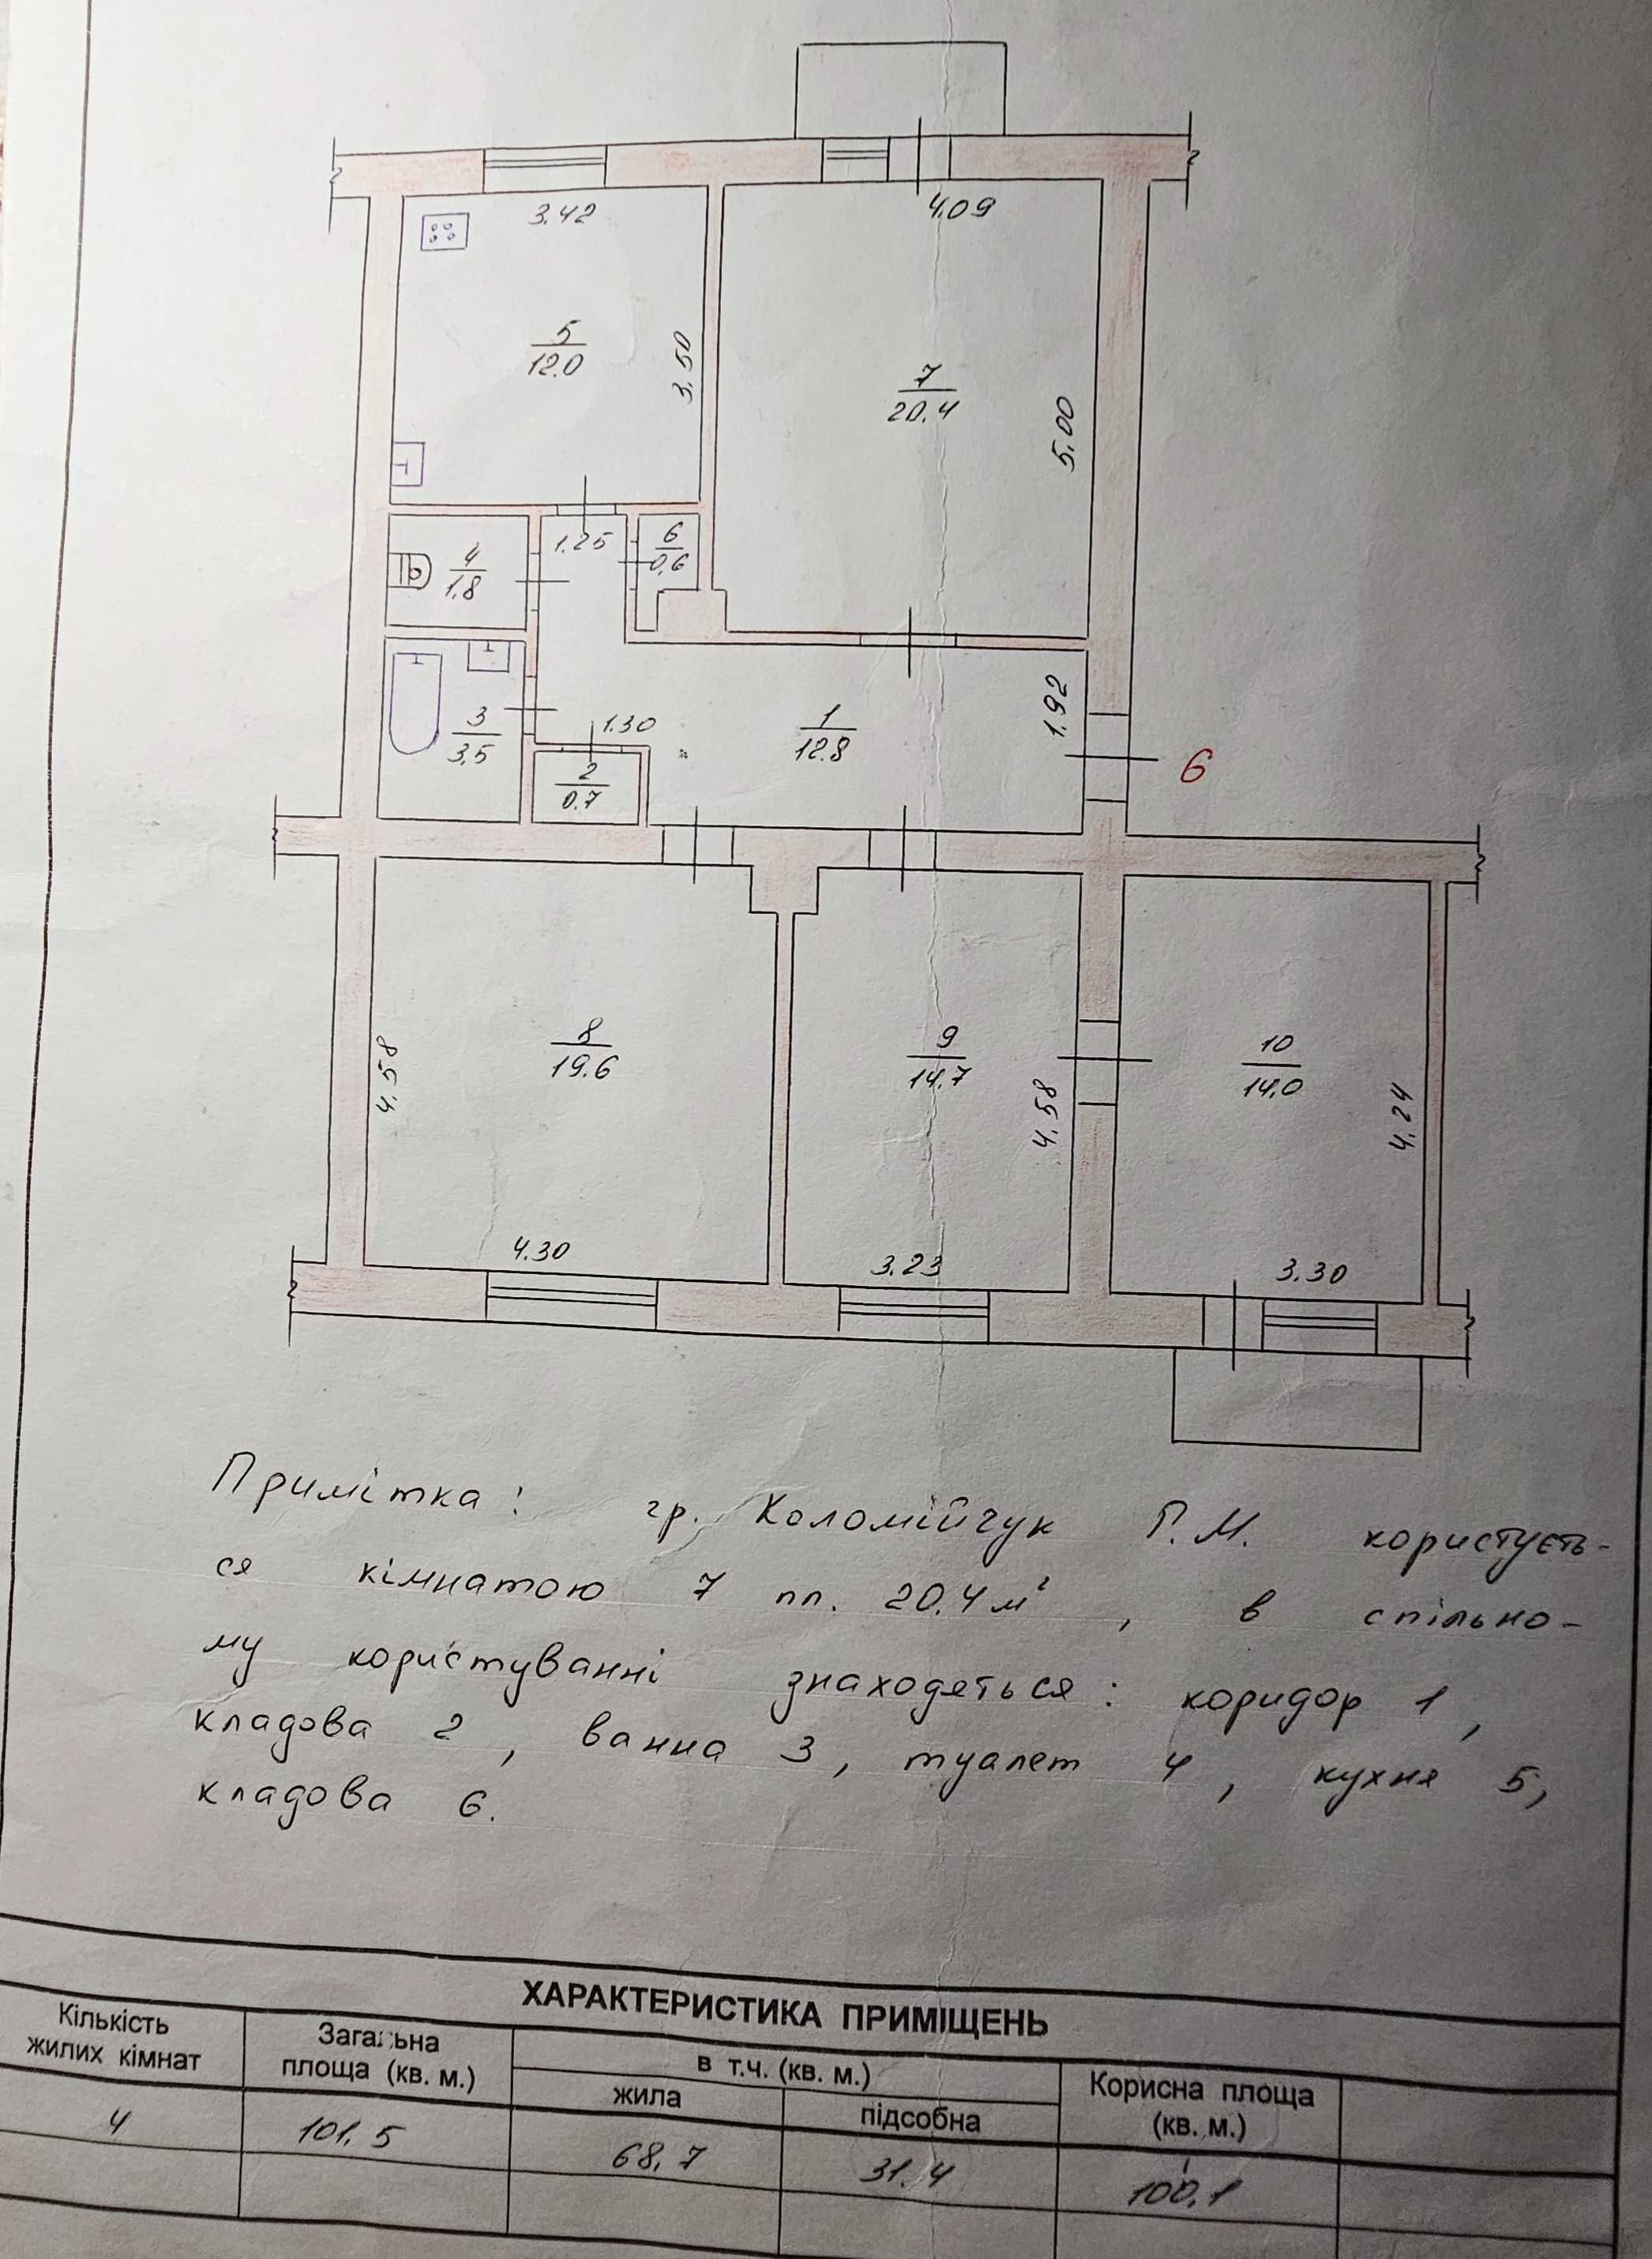 3.42
4.09
5
12.0
3.50
7
20.4
5.00
4
1.8
1.25
6
0.6
3
3.5
1.30
2
0.7
1
12.8
1.92
6
8
19.6
4.58
4.30
9
14.7
4.58
3.23
10
14.0
4.24
3.30
Примітка: гр. Коломійчук Г.М. користуєть-
ся кімнатою 7 пл. 20.4 м², в спільно-
му користуванні знаходяться: коридор 1,
кладова 2, ванна 3, туалет 4, кухня 5,
кладова 6.
ХАРАКТЕРИСТИКА ПРИМІЩЕНЬ
Кількість
жилих кімнат
Загальна
площа (кв. м.)
в т.ч. (кв. м.)
жила
підсобна
Корисна площа
(кв. м.)
4
101,5
68,7
31,4
100,1